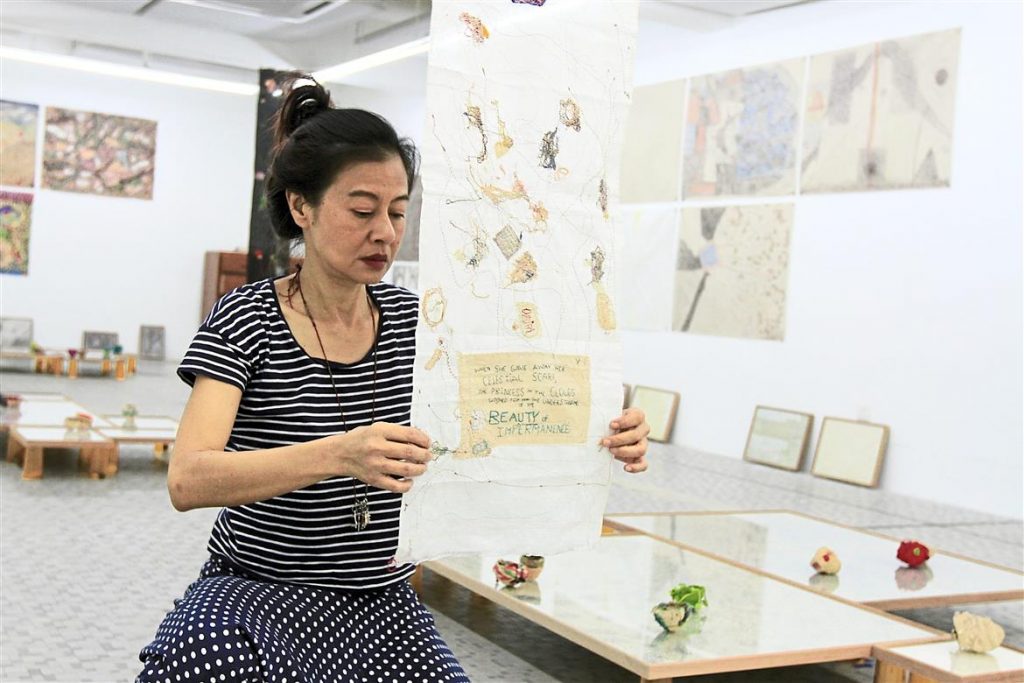 WHEN SHE GAVE AWAY HER
CELESTIAL SCARF,
THE PRINCESS OF THE CLOUDS
BEAUTY OF
IMPERMANENCE